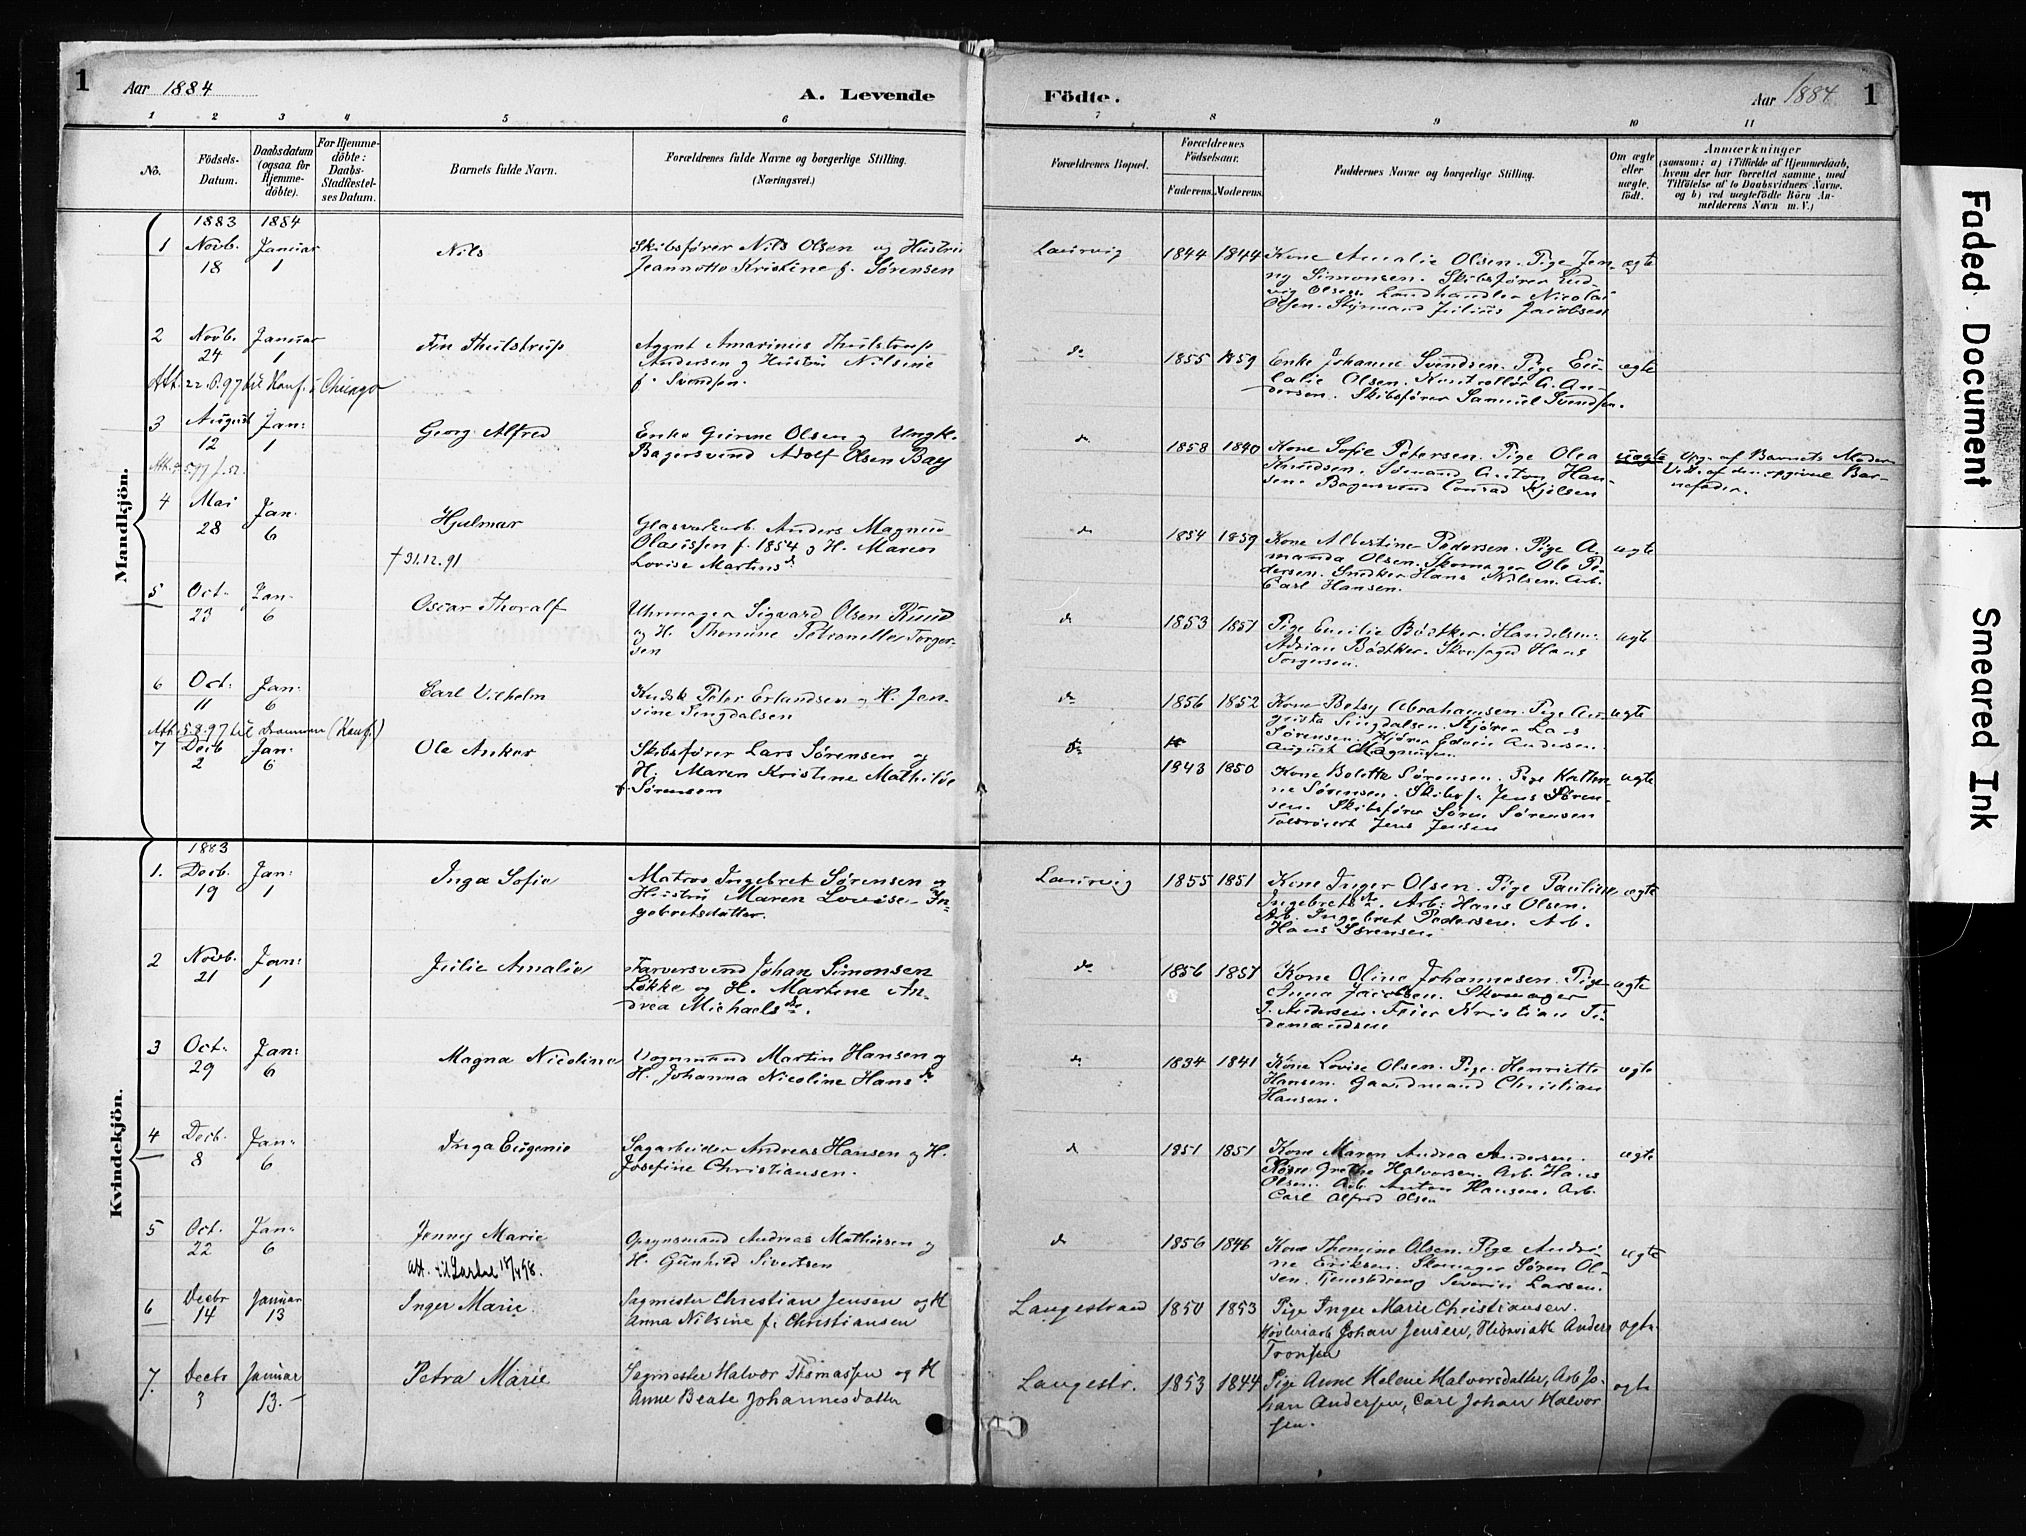 1 Aar 1884 A. Levende Födte. Aar 1884 1
1 2 3 4 5 6 7 8 9 10 11
No.
Födsels-
Datum.
Daabsdatum
(ogsaa for
Hjemme-
döbte).
For Hjemme-
döbte:
Daabs-
Stadfæstel-
ses Datum.
Barnets fulde Navn.
Forældrenes fulde Navne og borgerlige Stilling.
(Næringsvei.)
Forældrenes Bopæl.
Forældrenes
Födselsaar.
Faderens. Moderens.
Faddernes Navne og borgerlige Stilling.
Om ægte
eller
uægte
födt.
Anmærkninger
(saasom: a) i Tilfælde af Hjemmedaab,
hvem der har forrettet samme, med
Tilföielse af to Daabsvidners Navne.
og b) ved uægtefödte Börn An-
melderens Navn m. V.)
Mandkjön.
1883 1884
1 Novb. 18 Januar 1
Nils
Skibsfører Nils Olsen og Hustru
Jeannette Kristine f. Sørensen
Laurvig 1844 1844
Kone Amalie Olsen. Pige Jen-
ny Simonsen. Skibsfører Lud-
vig Olsen. Landhandler Nicolai
Olsen. Styrmand Julius Jacobsen
ægte
2 Novb. 24 Januar 1
Thulstrup
Agent Amarinus Thulstrup
Andersen og Hustru Nilsine
f. Svendsen.
do 1855 1859
Enke Johanne Svendsen. Pige Eu-
lalie Olsen. Kontrollør A. An-
dersen. Skibsfører Samuel Svendsen.
ægte
Att. 22.8.97 til Konf. i Chicago
3 August 12 Jan: 1
Georg Alfred
Enke Gurine Olsen og Ungk.
Bagersvend Adolf Olsen Bay
do 1858 1840
Kone Sofie Petersen. Pige Olea
Knudsen. Sømand Anton Han-
sen. Bagersvend Conrad Kjølsen
uægte
Opg. af Barnets Moder
Vedt. af den opgivne Bar-
nefader.
4 Mai 28 Jan: 6
Hjalmar
† 31.12.91
Glasværksarb. Anders Magnus
Olaussen f. 1854 og H. Maren
Lovise Martinsd.
do 1854 1859
Kone Albertine Pedersen. Pige A-
manda Olsen. Skomager Ole Pe-
dersen. Snedker Hans Nilsen. Arb.
Carl Hansen.
ægte
5 Oct. 23 Jan- 6
Oscar Thoralf
Uhrmager Sigvard Olsen Ruud
og H. Thomine Petronelle Torger-
sen
do 1853 1851
Pige Emilie Bødtker. Handelsm.
Adrian Bødtker. Hans
Torgersen.
ægte
6 Oct: 11 Jan: 6
Carl Vilhelm
Kudsk Peter Erlandsen og H. Jen-
sine Singdalsen
do 1856 1852
Kone Betsy Abrahamsen. Pige Au-
gusta Singdalsen. Kjører Lars
Sørensen. Kjører Edvin Andersen.
August Magnusen
ægte
Att. 5.8.97 til Drammen (Konf.)
7 Decb 2 Jan: 6
Ole Anker
Skibsfører Lars Sørensen og
H. Maren Kristine Mathilde
f. Sørensen
do 1843 1850
Kone Bolette Sørensen. Pige Kathri-
ne Sørensen. Skibsf. Jens Søren-
sen. Skibsfører Søren Sørensen
Jens Jensen
ægte
Kvindekjön.
1883
1. Decb. 19 Jan: 1
Inga Sofie
Matros Ingebret Sørensen og
Hustru Maren Lovise In-
gebretsdatter.
Laurvig 1855 1851
Kone Inger Olsen. Pige Pauline
Ingebretsd. Arb: Hans Olsen.
Arb. Ingebret Pedersen. Arb.
Hans Sørensen
ægte
2 Novb. 21 Jan: 1
Julie Amalie
Farversvend Johan Simonsen
Løkke og H. Martine An-
drea Michaelsd.
do 1856 1857
Kone Oline Johannesen. Pige
Anna Jacobsen. Skomager
J. Andersen. Feier Kristian Ti-
demandsen
ægte
3 Oct. 29 Jan: 6
Magna Nicoline
Vognmand Martin Hansen og
H. Johanna Nicoline Hansd.
do 1834 1841
Kone Lovise Olsen. Pige Henriette
Hansen. Gaardmand Christian
Hansen.
ægte
4 Decb. 8 Jan: 6
Inga Eugenie
Sagarbeider Andreas Hansen og H.
Josefine Christiansen.
do 1851 1851
Kone Maren Andrea Andersen.
Kone Grethe Halvorsen. Arb. Hans
Olsen. Arb. Anton Hansen. Arb.
Carl Alfred Olsen
ægte
5 Oct. 22 Jan: 6
Jenny Marie
Opsynsmand Andreas Mathisen og
H. Gunhild Sivertsen
do 1856 1846
Kone Thomine Olsen. Pige Andri-
ne Eriksen. Skomager Søren Ol-
sen. Tjenestedreng Severin Larsen.
ægte
6 Decbr 14 Januar 13
Inger Marie
Sagmester Christian Jensen og H
Anna Nilsine f. Christiansen
Langestrand 1850 1853
Pige Inger Marie Christiansen.
Høvleriarb Johan Jensen, Anders
Tronsen
ægte
7. Decbr 3 Januar 13.
Petra Marie
Sagmester Halvor Thomassen og H
Anne Beate Johannesdatter
Langestr. 1853 1844
Pige Anne Helene Halvorsdatter, Arb Jo-
han Andersen, Carl Johan Halvor
sen.
ægte
Faded Document
Smeared Ink